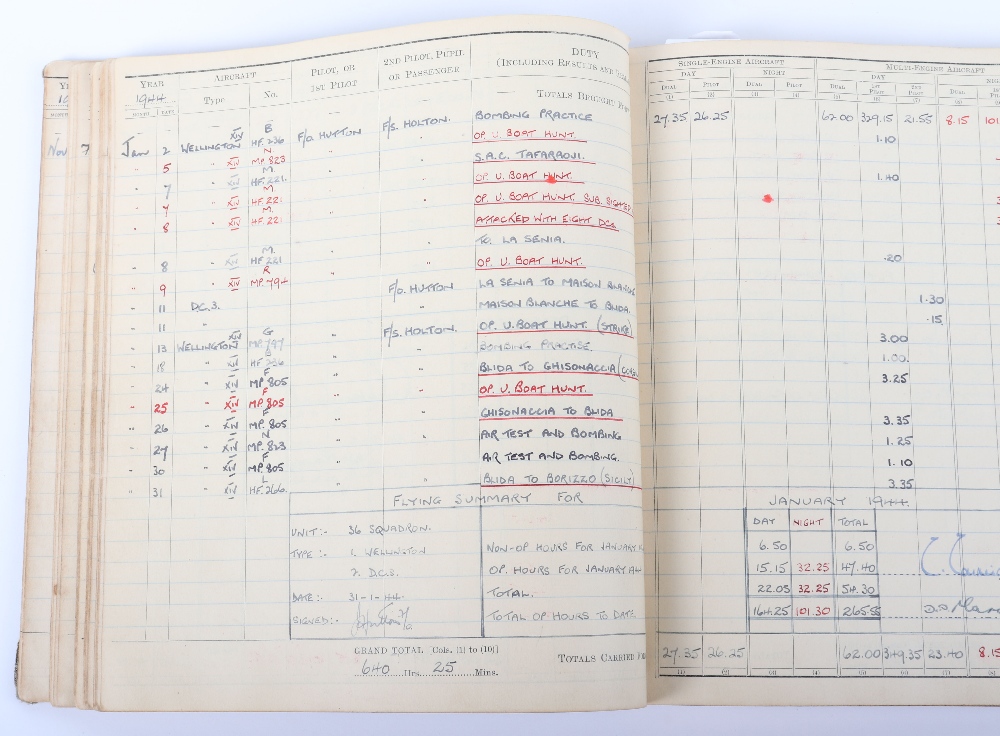 YEAR AIRCRAFT PILOT, OR 1ST PILOT 2ND PILOT, PUPIL OR PASSENGER DUTY
1944 Type No. (INCLUDING RESULTS AND
MONTH DATE
TOTALS BROUGHT
Jan 2 WELLINGTON XIV B HF.236 F/O. HUTTON F/S. HOLTON. BOMBING PRACTICE
OP. U. BOAT HUNT.
" 5 " XIV N MP.823 " " S.A.C. TAFARAOUI.
" 7 " XIV M. HF.221. " " OP. U. BOAT HUNT.
" 7 " XIV M HF.221 " " OP. U BOAT HUNT. SUB. SIGHTED
" 8 " XIV M. HF.221 " " ATTACKED WITH EIGHT DCs.
TO. LA SENIA.
" 8 " XIV M. HF.221 " " OP. U BOAT HUNT.
" 9 " XIV R MP.794 " F/O. HUTTON LA SENIA TO MAISON BLANCHE
" 11 D.C.3. " MAISON BLANCHE TO BLIDA.
" 11 " F/S. HOLTON. OP. U. BOAT HUNT. (STRIKE)
" 13 WELLINGTON XIV G MP.797 " " BOMBING PRACTISE.
" 18 " XIV HF.236 " " BLIDA TO GHISONACCIA
" 24 " XIV F MP.805 " " OP. U. BOAT HUNT.
" 25 " XIV F MP.805 " " GHISONACCIA TO BLIDA
" 26 " XIV F MP.805 " " AIR TEST AND BOMBING
" 27 " XIV N MP.823 " " AIR TEST AND BOMBING.
" 30 " XIV F MP.805 " " BLIDA TO BORIZZO (SICILY)
" 31 " XIV L HF.266.
FLYING SUMMARY FOR
UNIT:- 36 SQUADRON.
TYPE:- 1. WELLINGTON NON-OP HOURS FOR JANUARY
2. D.C.3. OP. HOURS FOR JANUARY 44
DATE:- 31-1-44. TOTAL.
SIGNED:- TOTAL OP HOURS TO DATE
GRAND TOTAL [Cols. (1) to (10)] TOTALS CARRIED
640 Hrs. 25 Mins.
Nov 7
SINGLE-ENGINE AIRCRAFT MULTI-ENGINE AIRCRAFT
DAY NIGHT DAY
DUAL PILOT DUAL PILOT DUAL 1ST PILOT 2ND PILOT DUAL
(1) (2) (3) (4) (5) (6) (7) (8)
27.35 26.25 62.00 329.15 21.55 8.15
1.10
1.40
.20
1.30
.15
3.00
1.00.
3.25
3.35
1.25
1.10
3.35
JANUARY 1944.
DAY NIGHT TOTAL
6.50 6.50
15.15 32.25 47.40
22.05 32.25 54.30
164.25 101.30 265.55
27.35 26.25 62.00 349.35 23.40 8.15
(1) (2) (3) (4) (5) (6) (7) (8)